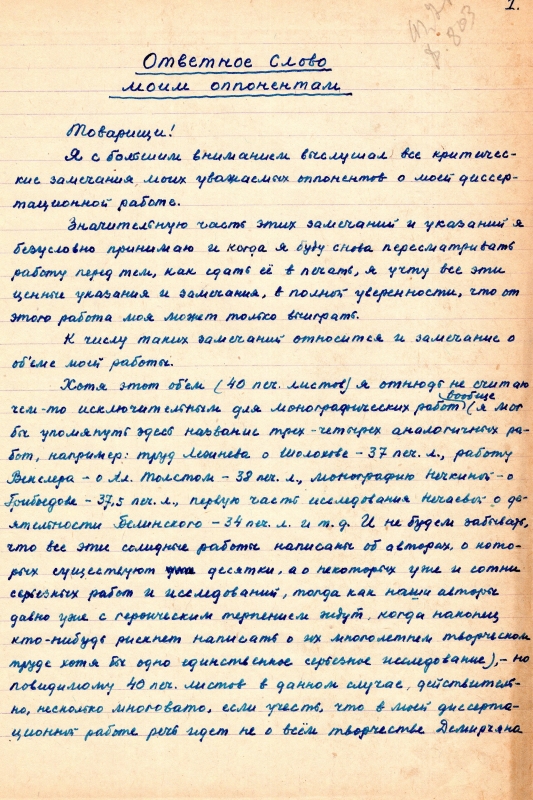 1.
803
Ответное Слово
моим оппонентам
Товарищи!
Я с большим вниманием выслушал все критичес-
кие замечания моих уважаемых оппонентов о моей диссер-
тационной работе.
Значительную часть этих замечаний и указаний я
безусловно принимаю и когда я буду снова пересматривать
работу перед тем, как сдать её в печать, я учту все эти
ценные указания и замечания, в полной уверенности, что от
этого работа моя может только выиграть.
К числу таких замечаний относится и замечание о
об'еме моей работы.
Хотя этот об'ем (40 печ. листов) я отнюдь не считаю
вообще
чем-то исключительным для монографических работ (я мог
бы упомянуть здесь название трех-четырех аналогичных ра-
бот, например: труд Лежнева о Шолохове – 37 печ. л., работу
Векслера – о Ал. Толстом – 38 печ. л., монографию Нечкиной – о
Грибоедове – 37,5 печ. л., первую часть исследования Нечаевой о де-
ятельности Белинского – 34 печ. л. и т. д. И не будем забывать,
что все эти солидные работы написаны об авторах, о кото-
рых существуют десятки, а о некоторых уже и сотни
серьезных работ и исследований, тогда как наши авторы
давно уже с героическим терпением ждут, когда наконец
кто-нибудь рискнет написать о их многолетнем творческом
труде хотя бы одно единственное серьезное исследование), – но
повидимому 40 печ. листов в данном случае, действитель-
но, несколько многовато, если учесть, что в моей диссерта-
ционной работе речь идет не о всём творчестве Демирчяна